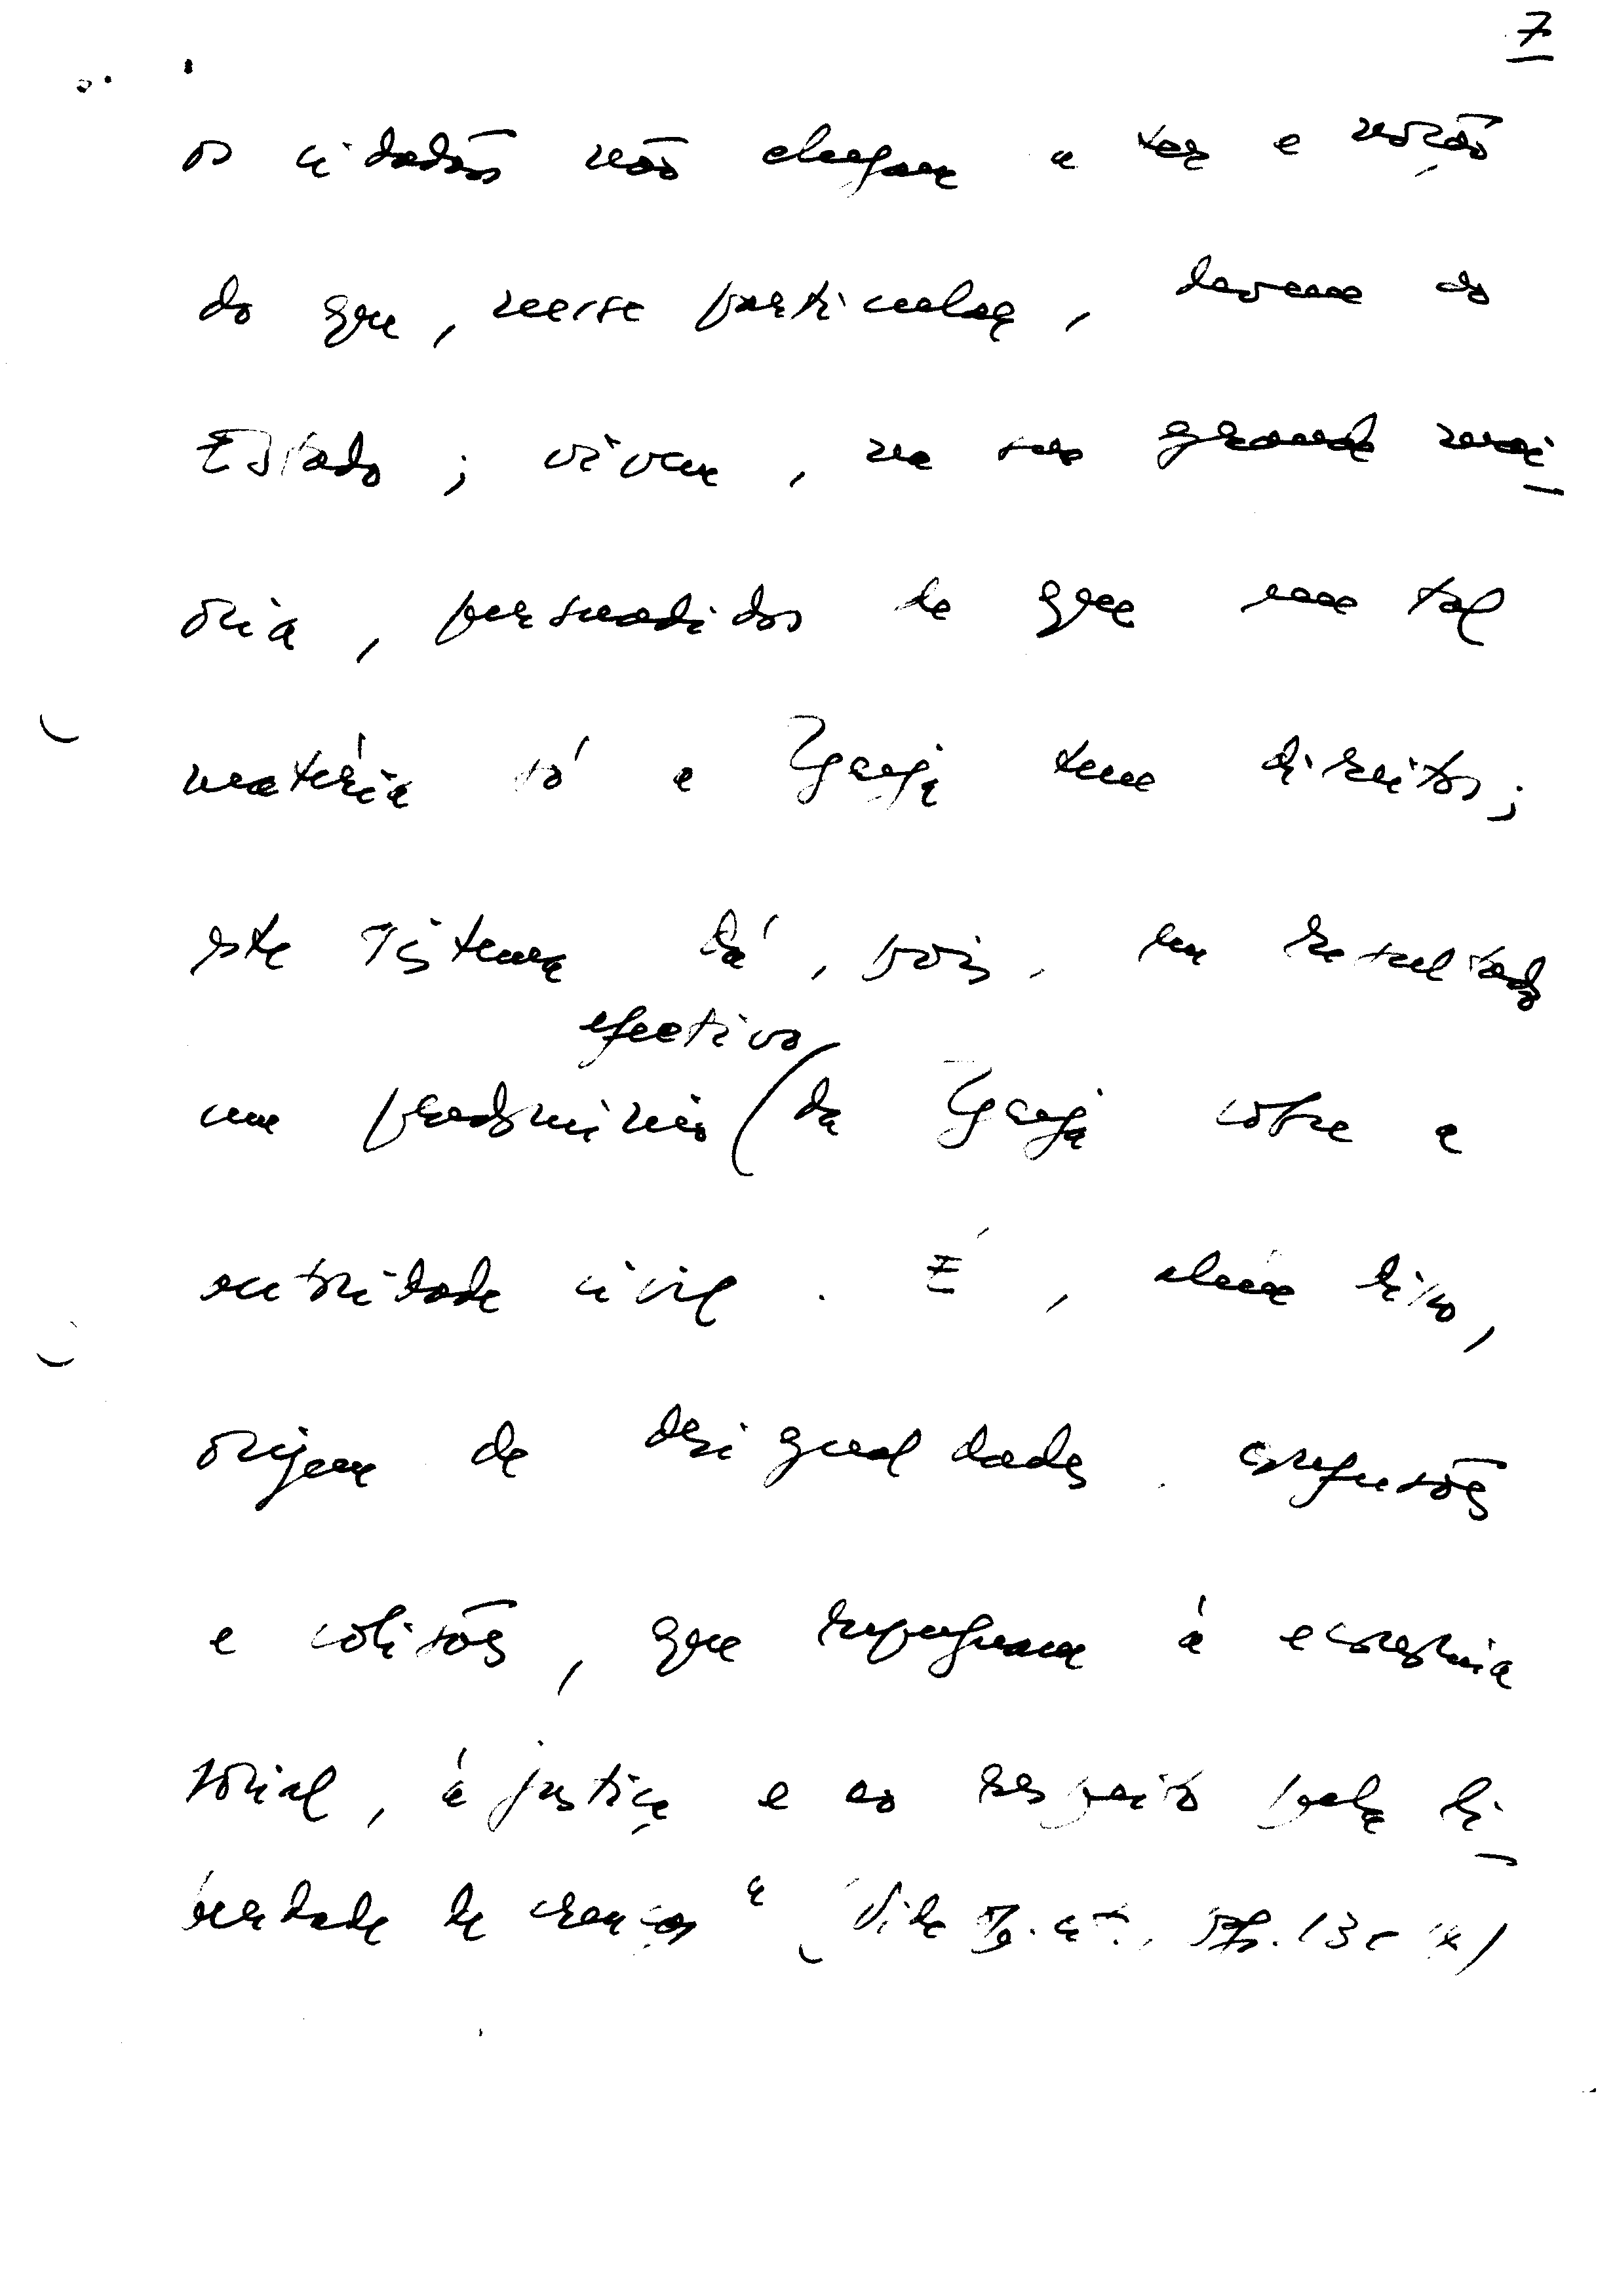 7
os cidadãos não chegam a ter a noção
do que, nesse particular, devem ao
Estado; vivem, na sua grande mai-
oria, persuadidos de que em tal
matéria só a Igreja tem direitos;
este sistema dá, pois, em resultado
efectivo
um predomínio (da Igreja sobre a
autoridade civil. É, além disso,
origem de desigualdades, confusões
e colisões, que repugnam à economia
social, à justiça e ao respeito pela li-
berdade de crenças" (Vide Op. cit., pgs. 13 e